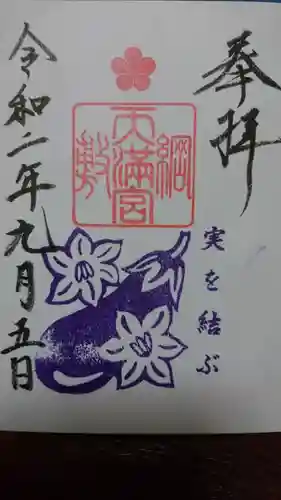 奉拝
天満宮
綱
敷
実を結ぶ
令和二年九月五日